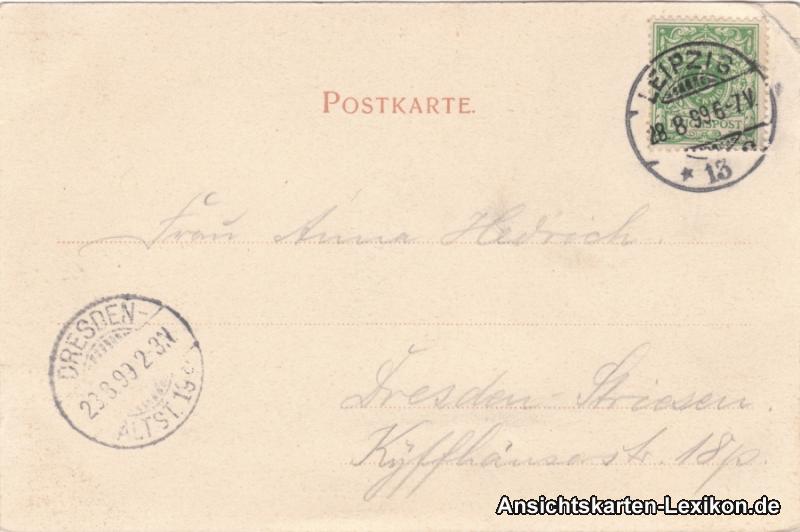 POSTKARTE.
LEIPZIG
28.8.99 6-7V.
* 13
REICHSPOST
Frau Anna Hedrich.
DRESDEN-
28.8.99 2-3N.
ALTST. 19
Dresden-Striesen.
Kyffhäuserstr. 18p.
Ansichtskarten-Lexikon.de